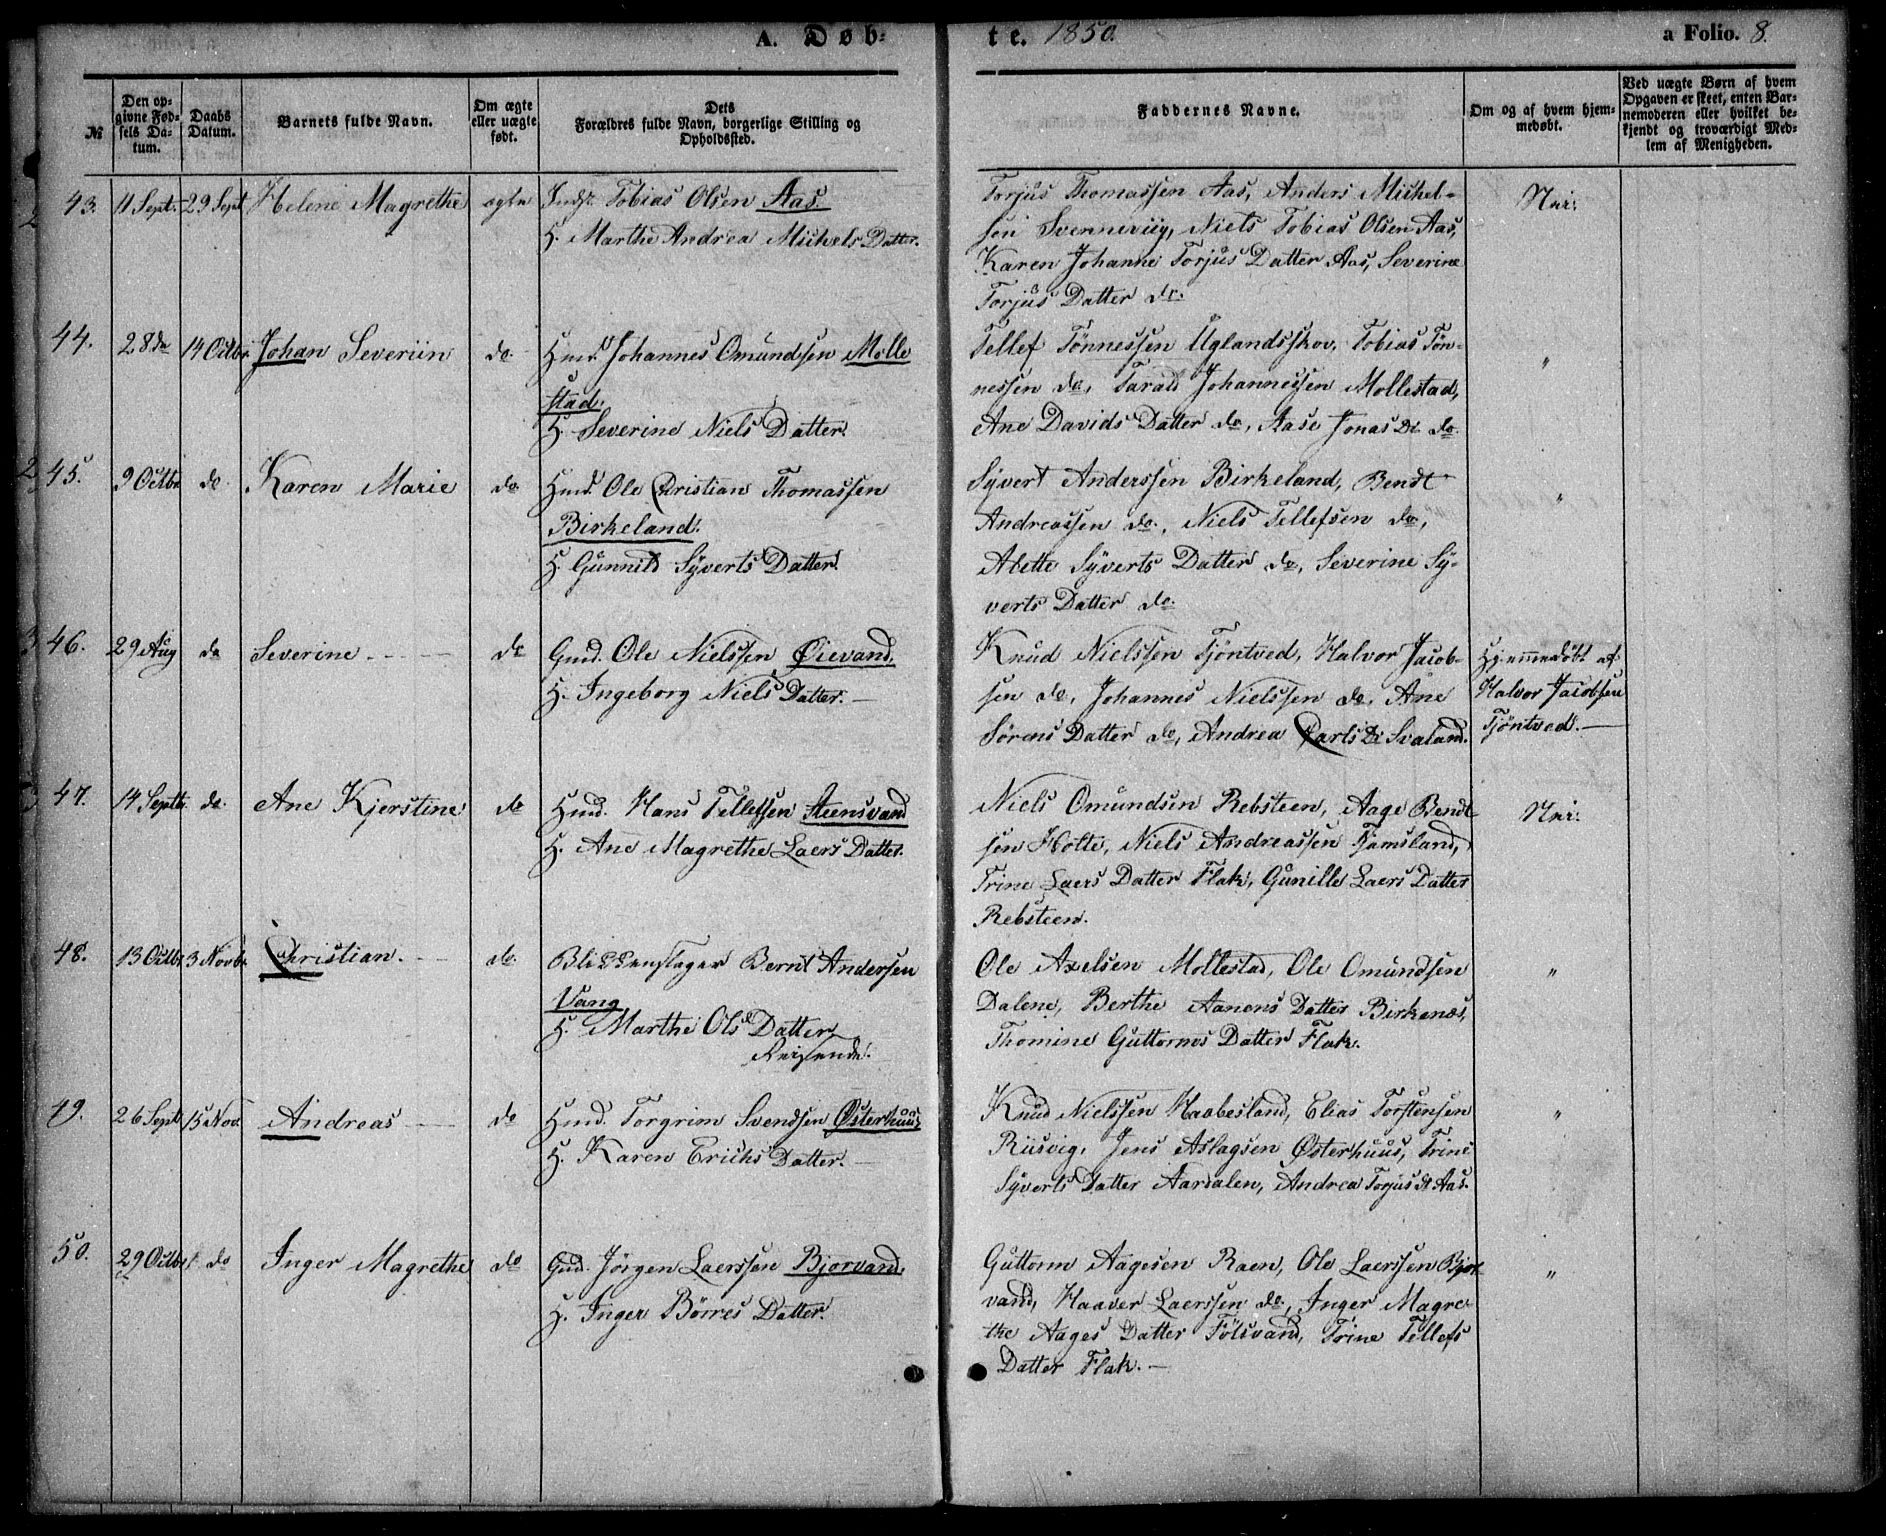 A. Døb= te. 1850. a Folio. 8.
№
Den op=
givne Fød=
sels Da=
tum.
Daabs
Datum.
Barnets fulde Navn.
Om ægte
eller uægte
født.
Dets
Forældres fulde Navn, borgerlige Stilling og
Opholdssted.
Faddernes Navne.
Om og af hvem hjem=
medøbt.
Ved uægte Børn af hvem
Opgaven er skeet, enten Bar=
nemoderen eller hvilket be=
kjendt og troværdigt Med=
lem af Menigheden.
43. 11 Sept. 29 Sept Helene Magrethe ægte Inds. Tobias Olsen Aas.
H. Marthe Andrea Michels Datter.
Torjus Thomassen Aas, Anders Michel=
sen Svenneviig, Niels Tobias Olsen Aas,
Karen Johanne Torjus Datter Aas, Severine
Torjus Datter do.
Nei.
44. 28 do 14 Octbr. Johan Severiin do. Hmd. Johannes Omundsen Molle
stad.
H. Severine Niels Datter.
Tellef Tönnessen Uglandsskov, Tobias Tön=
nessen do, Tarald Johannessen Mollestad,
Ane Davids Datter do, Aase Jonas Dt do.
"
45. 9 Octbr do. Karen Marie do Hmd. Ole Christian Thomassen
Birkeland.
H. Gunnild Syverts Datter.
Syvert Anderssen Birkeland, Bendt
Andreassen do., Niels Tellefsen do,
Alette Syverts Datter do, Severine Sy=
verts Datter do.
"
46. 29 Aug do Severine. do Gmd. Ole Nielssen Øievand.
H. Ingeborg Niels Datter.
Knud Nielssen Tjöntved, Halvor Jacob=
sen do, Johannes Nielssen do, Ane
Sörens Datter do, Andrea Carls Dt Svaland.
Hjemmedöbt af
Halvor Jacobsen
Tjöntved.
47. 14 Septbr. do. Ane Kjerstine do Hmd. Hans Tellefsen Steensvand
H. Ane Magrethe Laers Datter.
Niels Omundsen Rebsteen, Aage Bendt=
sen Holte, Niels Andreassen Tjamsland,
Trine Laers Datter Flak, Gunille Laers Datter
Rebsteen.
Nei.
48. 13 Octbr. 3 Novbr. Christian. do. Blikkenslager Bernt Andersen
Vang
H. Marthe Ols Datter
Reisende.
Ole Axelsen Mollestad, Ole Omundsen
Dalene, Berthe Aanons Datter Birkenes,
Thomine Guttorms Datter Flak.
"
49. 26 Septr 15 Nov. Andreas do Hmd. Torgrim Svendsen Østerhuus
H. Karen Erichs Datter.
Knud Nielssen Haabesland, Elias Torstensen
Riisvig, Jens Aslagsen Østerhuus, Trine
Syverts Datter Aardalen, Andrea Torjus Dt Aas.
"
50. 29 Octbr. do Inger Magrethe do Gmd. Jörgen Laerssen Bjorvand.
H. Inger Börres Datter.
Guttorm Aagesen Raen, Ole Laerssen Bjor=
vand, Haaver Laerssen do, Inger Magre=
the Aages Datter Fölsvand, Trine Tellefs
Datter Flak.
"